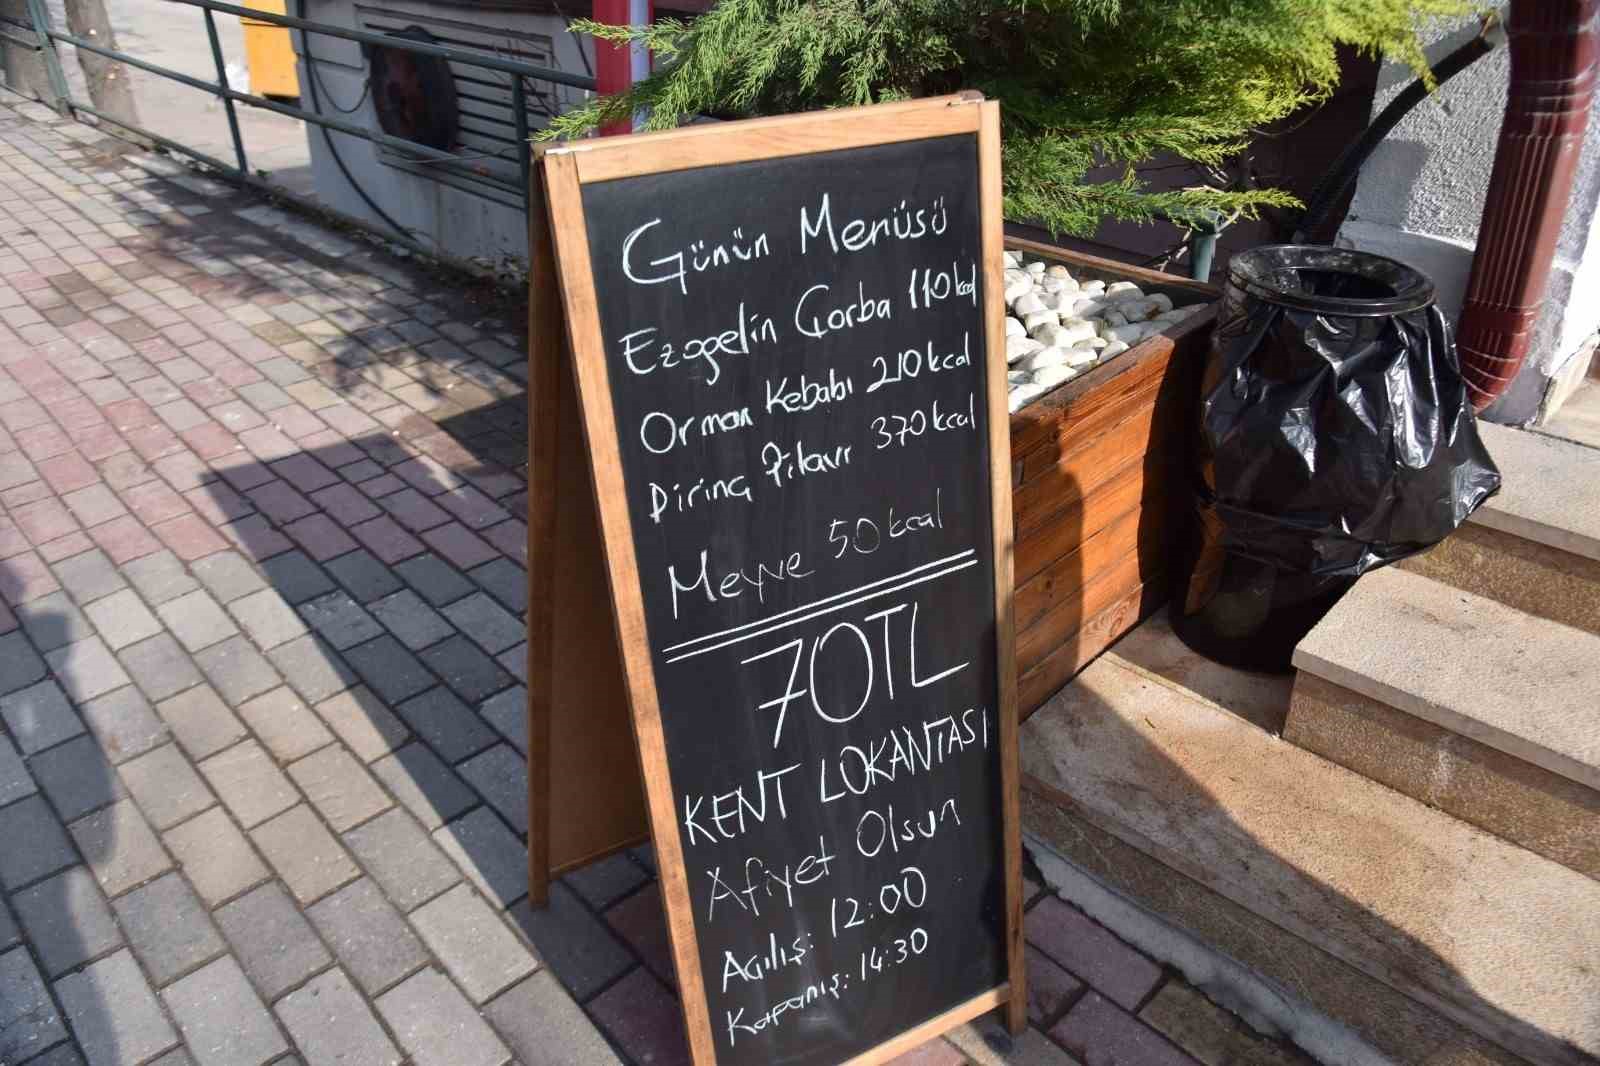 Günün Menüsü
Ezogelin Çorba 110 kcal
Orman Kebabı 210 kcal
Pirinç Pilavı 370 kcal
Meyve 50 kcal
70TL
KENT LOKANTASI
Afiyet Olsun
Açılış: 12:00
Kapanış: 14:30